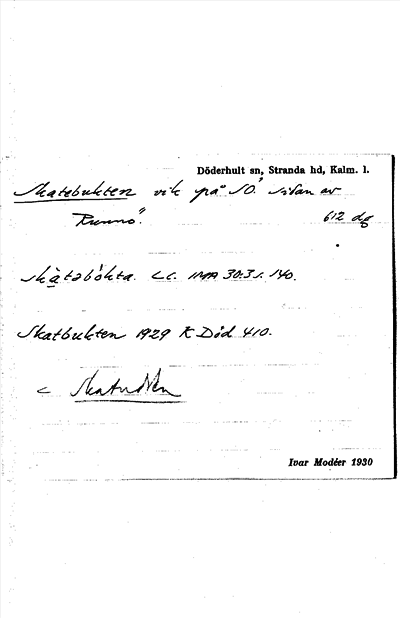 Döderhult sn, Stranda hd, Kalm. l.
Skatebukten vik på SO. sidan av
Runnö.
612 dg
skàtəbòkta. Lc. IMA 30:3 s. 140.
Skatbukten 1929 K Död 410.
< Skatudden
Ivar Modéer 1930